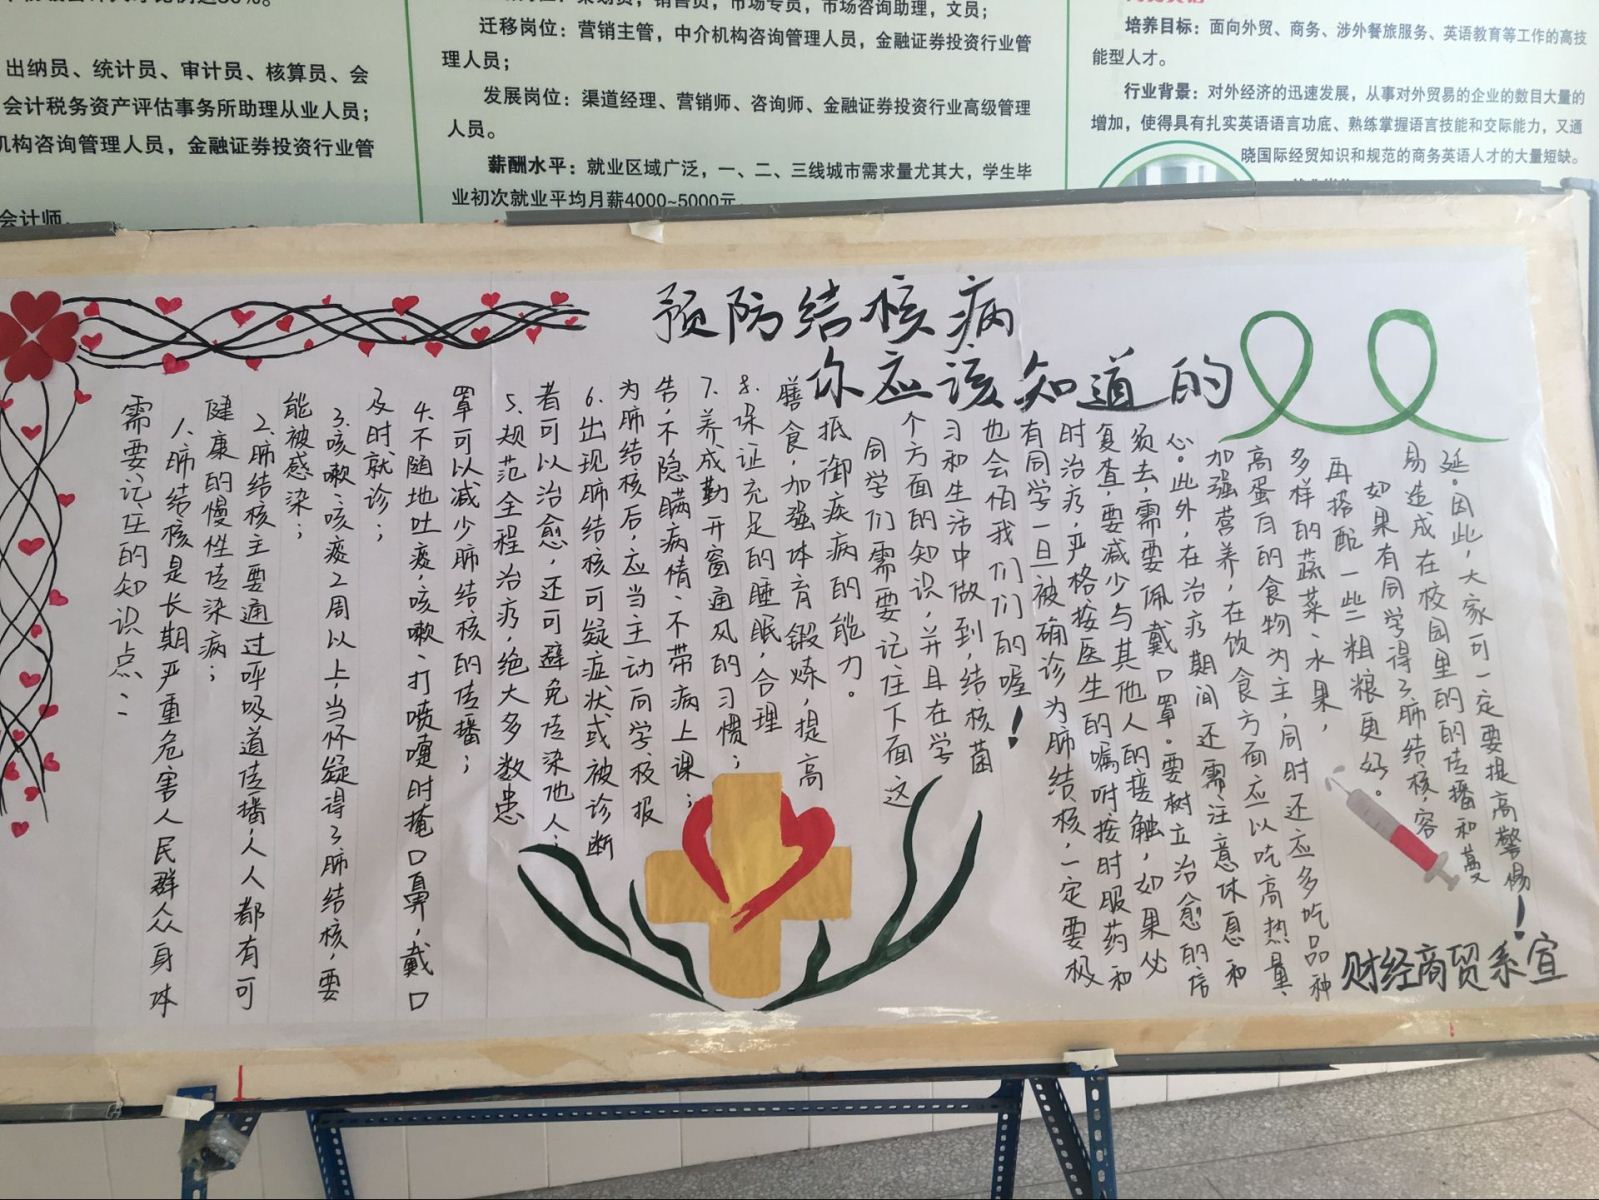 出纳员、统计员、审计员、核算员、会
会计税务资产评估事务所助理从业人员；
机构咨询管理人员，金融证券投资行业管
会计师
市场专员，市场咨询助理，文员；
迁移岗位：营销主管，中介机构咨询管理人员，金融证券投资行业管
理人员；
发展岗位：渠道经理、营销师、咨询师、金融证券投资行业高级管理
人员。
薪酬水平：就业区域广泛，一、二、三线城市需求量尤其大，学生毕
业初次就业平均月薪4000~5000元
培养目标：面向外贸、商务、涉外餐旅服务、英语教育等工作的高技
能型人才。
行业背景：对外经济的迅速发展，从事对外贸易的企业的数目大量的
增加，使得具有扎实英语语言功底、熟练掌握语言技能和交际能力，又通
晓国际经贸知识和规范的商务英语人才的大量短缺。
预防结核病
你应该知道的
需要记住的知识点：
1.肺结核是长期严重危害人民群众身体
健康的慢性传染病；
2.肺结核主要通过呼吸道传播，人人都有可
能被感染；
3.咳嗽、咳痰2周以上，当怀疑得了肺结核，要
及时就诊；
4.不随地吐痰，咳嗽、打喷嚏时掩口鼻，戴口
罩可以减少肺结核的传播；
5.规范全程治疗，绝大多数患
者可以治愈，还可避免传染他人；
6.出现肺结核可疑症状或被诊断
为肺结核后，应当主动向学校报
告，不隐瞒病情、不带病上课；
7.养成勤开窗通风的习惯；
8.保证充足的睡眠，合理
膳食，加强体育锻炼，提高
抵御疾病的能力。
同学们需要记住下面这
个方面的知识，并且在学
习和生活中做到，结核菌
也会怕我们们的喔！
有同学一旦被确诊为肺结核，一定要极
时治疗，严格按医生的嘱咐按时服药和
复查，要减少与其他人的接触，如果必
须去，需要佩戴口罩。要树立治愈的信
心。此外，在治疗期间还需注意休息和
加强营养，在饮食方面应以吃高热量、
高蛋白的食物为主，同时还应多吃品种
多样的蔬菜、水果，
再搭配一些粗粮更好。
如果有同学得了肺结核，容
易造成在校园里的的传播和蔓
延。因此，大家可一定要提高警惕！
财经商贸系宣